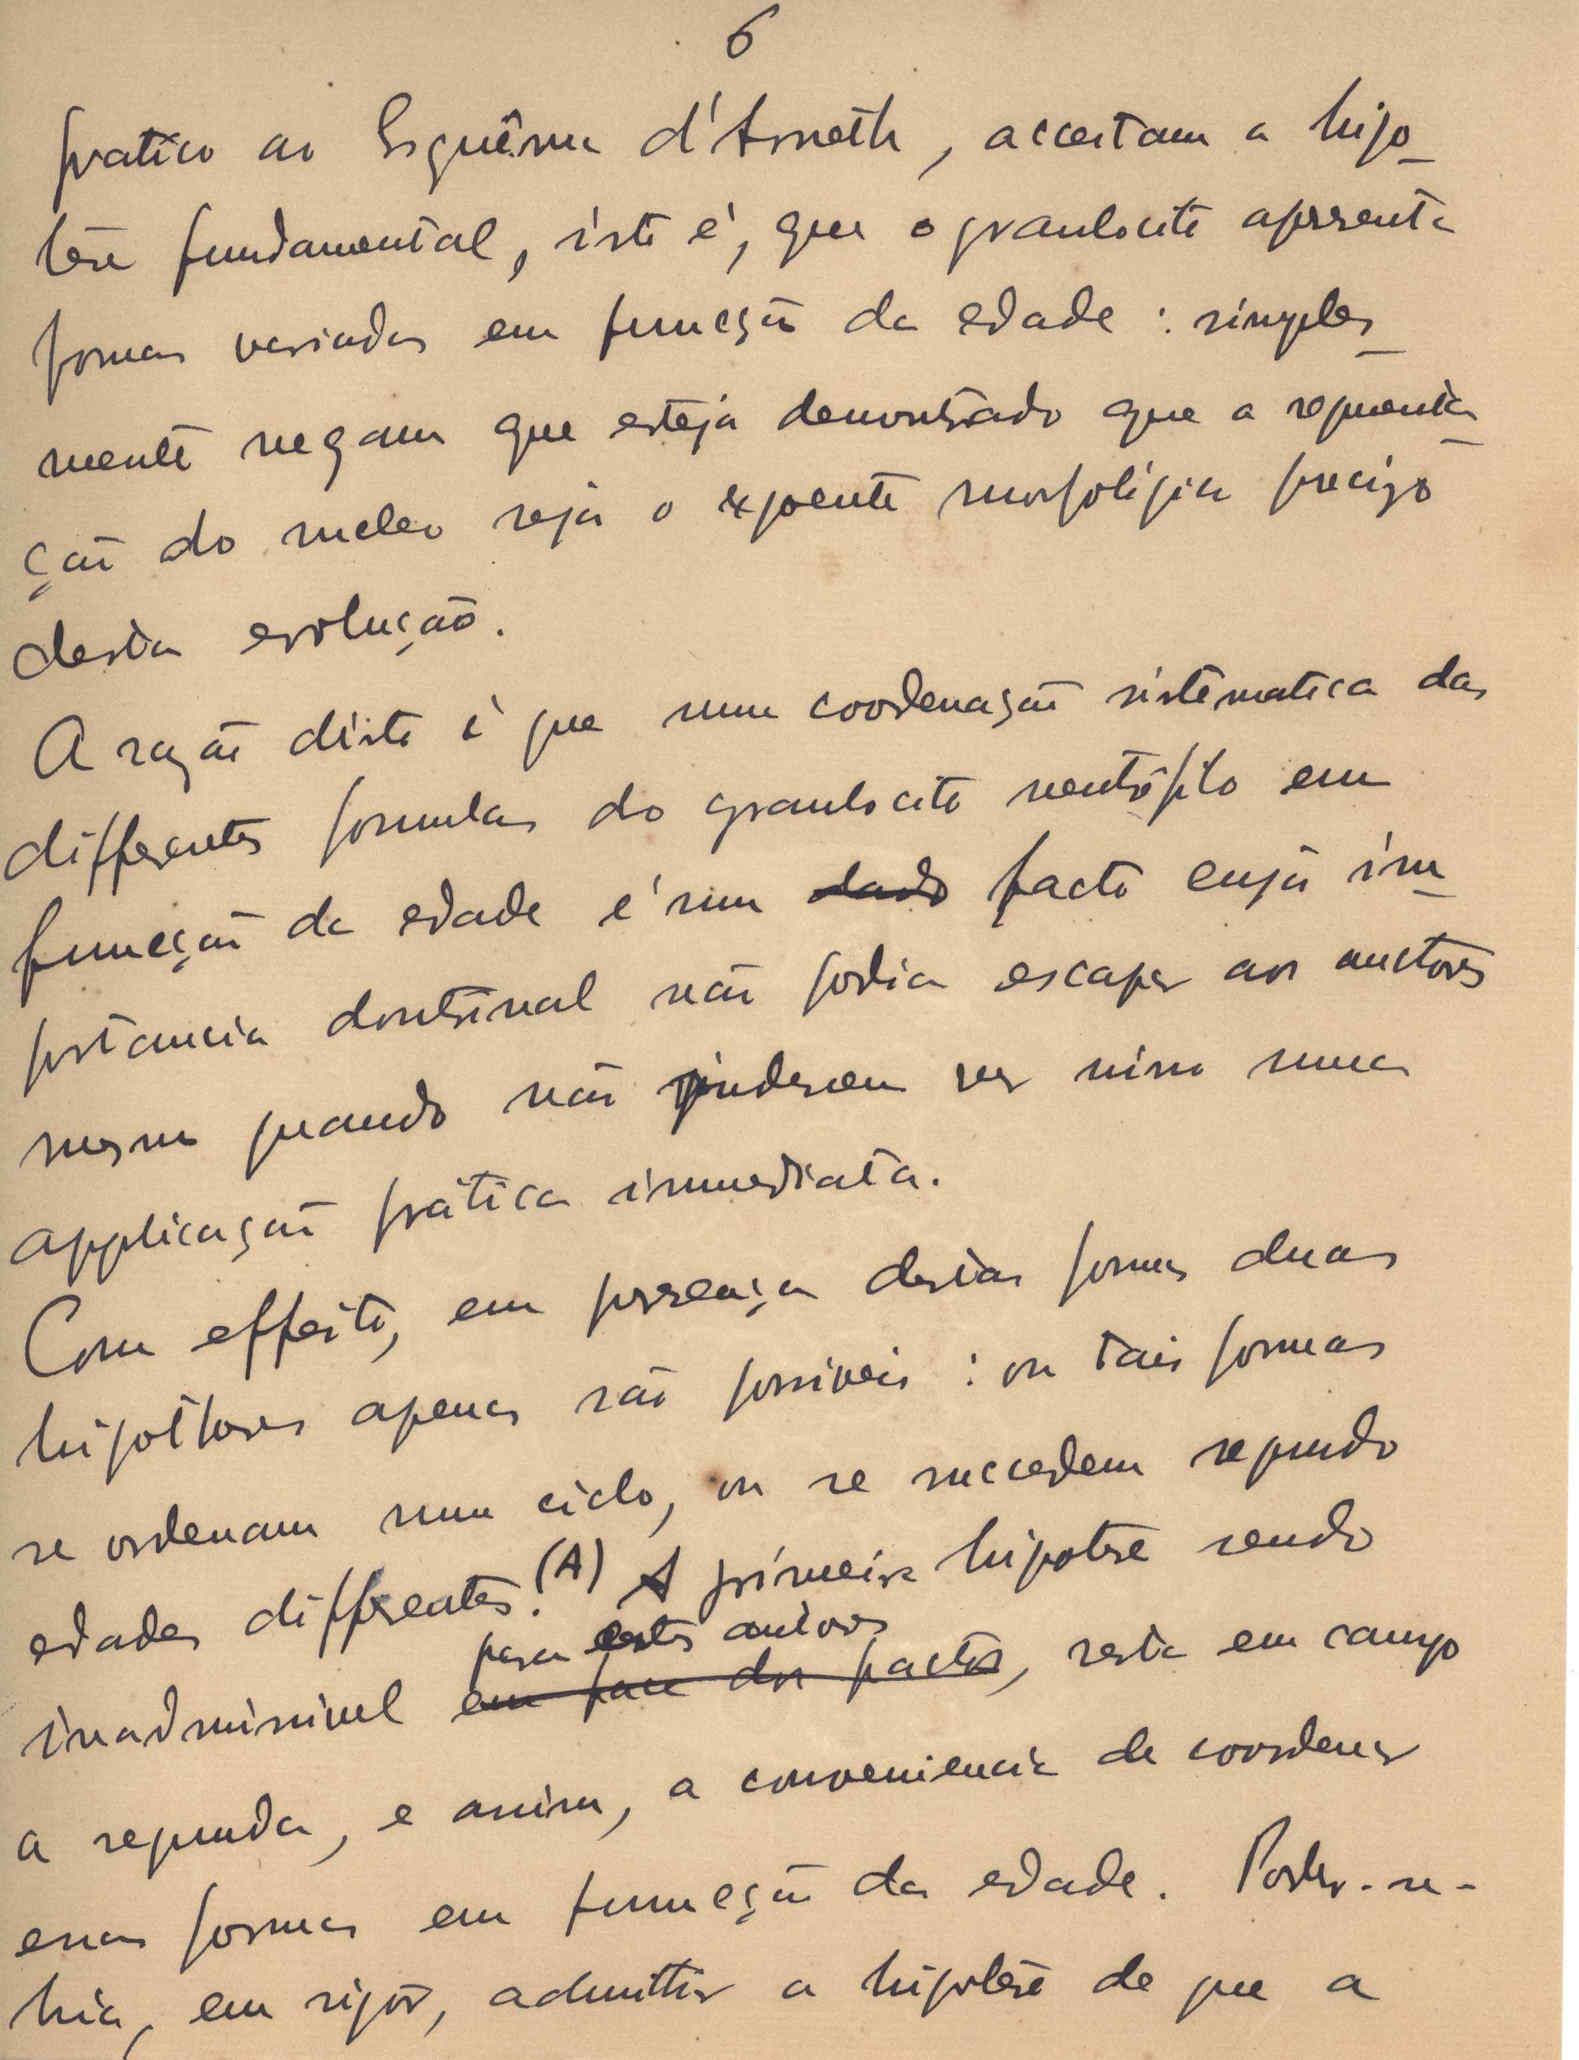 6
pratico ao Esquêma d'Arneth, acceitam a hipo-
tése fundamental, isto é, que o granulocito apresenta
formas variadas em funcção da edade : simples-
mente negam que esteja demonstrado que a segmenta-
ção do nucleo seja o expoente morfologico preciso
desta evolução.
A razão disto é que uma coordenação sistematica das
differentes formulas do granulocito neutrófilo em
funcção da edade é um dado facto cuja im-
portancia doutrinal não podia escapar aos auctores
mesmo quando não puderam ver nisso uma
applicação prática immediata.
Com effeito, em presença destas formas duas
hipotheses apenas são possiveis : ou tais formas
se ordenam num ciclo, ou se succedem segundo
edades differentes. (A) A primeira hipotese sendo
para estes autores
inadmissivel em face dos factos, resta em campo
a segunda, e assim, a conveniencia de coordenar
essas formas em funcção da edade. Poder-se-
hia, em rigôr, admittir a hipotése de que a